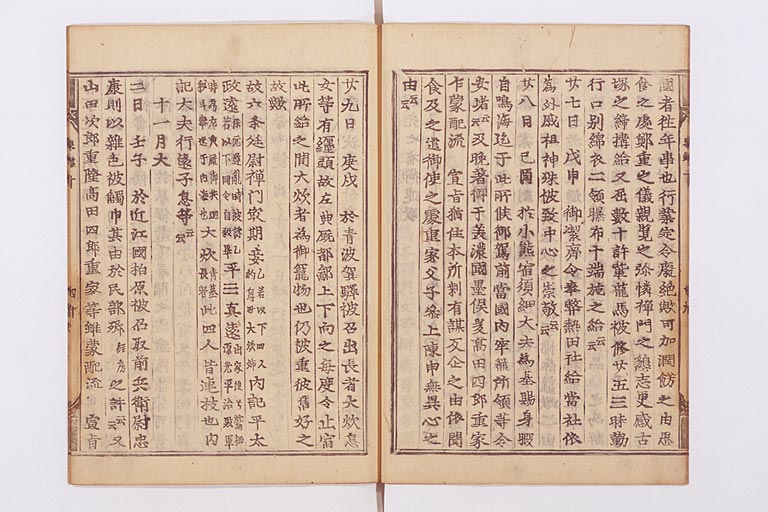 國者往年事也行業定令慶絶歟可加潤餝之由思
食之處鄭重之儀親覽之弥憐禪門之懇志更感古
塚之締搆給又召數十許輩龍馬被修廿五三昧勤
行口別錦衣二領曝布十端施之給云云
廿七日 戊申 御潔齊令奉幣熱田社給當社依
爲外戚祖神殊被致中心之崇敬云云
廿八日 己酉 於小熊宿須細大夫爲基賜身暇
自鳴海迄于此所候御駕前當國内宰龍所領等令
安堵云云 及晚著御于美濃國墨俣爰高田四郎重家
乍蒙配流 宣旨猶住本所剰有謀反企之由依聞
食及之遣御使之處重家父子參上陳申無異心之
由云云
廿九日 庚戌 於青波賀驛被召出長者大炊息
女等有纒頭故左典厩都鄙上下向之毎度令止宿
此所給之間大炊者爲御寵物也仍被重彼舊好之
故歟
故六条廷尉禪門最期妾 乙若以下四人幼息母大炊姉 内記平太
政遠 保元逆亂時被誅乙若以下同令自殺畢 平三眞遠 出家後号鷲栖源光平治敗軍
時爲左典厩御共廻秘計奉送于内海也 大炊 青墓長者 此四人皆連枝也内
記大夫行遠子息等云云
十一月大
二日 壬子 於近江國柏原被召取前兵衛尉忠
康則以雜色被觸申其由於民部卿 經房 之許云云 又
山田次郎重隆高田四郎重家等雖蒙配流 宣旨